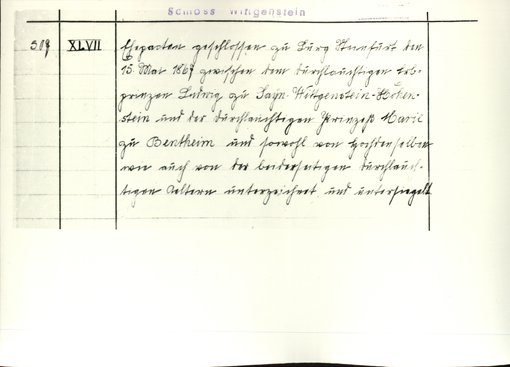 Schloss Wittgenstein
509 XLVII Ehepacten geschlossen zu Burg Steinfurt den
15. Mai 1867 zwischen dem durchlauchtigen Erb-
prinzen Ludwig zu Sayn-Wittgenstein-Hohen-
stein und der durchlauchtigen Prinzeß Marie
zu Bentheim und sowohl von Hochdenselben
wie auch von den beiderseitigen durchlauch-
tigen Aeltern unterzeichnet und untersiegelt